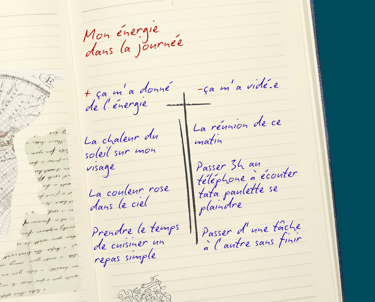 Mon énergie
dans la journée
+ ça m'a donné
de l'énergie
La chaleur du
soleil sur mon
visage
La couleur rose
dans le ciel
Prendre le temps
de cuisiner un
repas simple
-ça m'a vidé.e
La réunion de ce
matin
Passer 3h au
téléphone à écouter
tata paulette se
plaindre
Passer d'une tâche
à l'autre sans finir